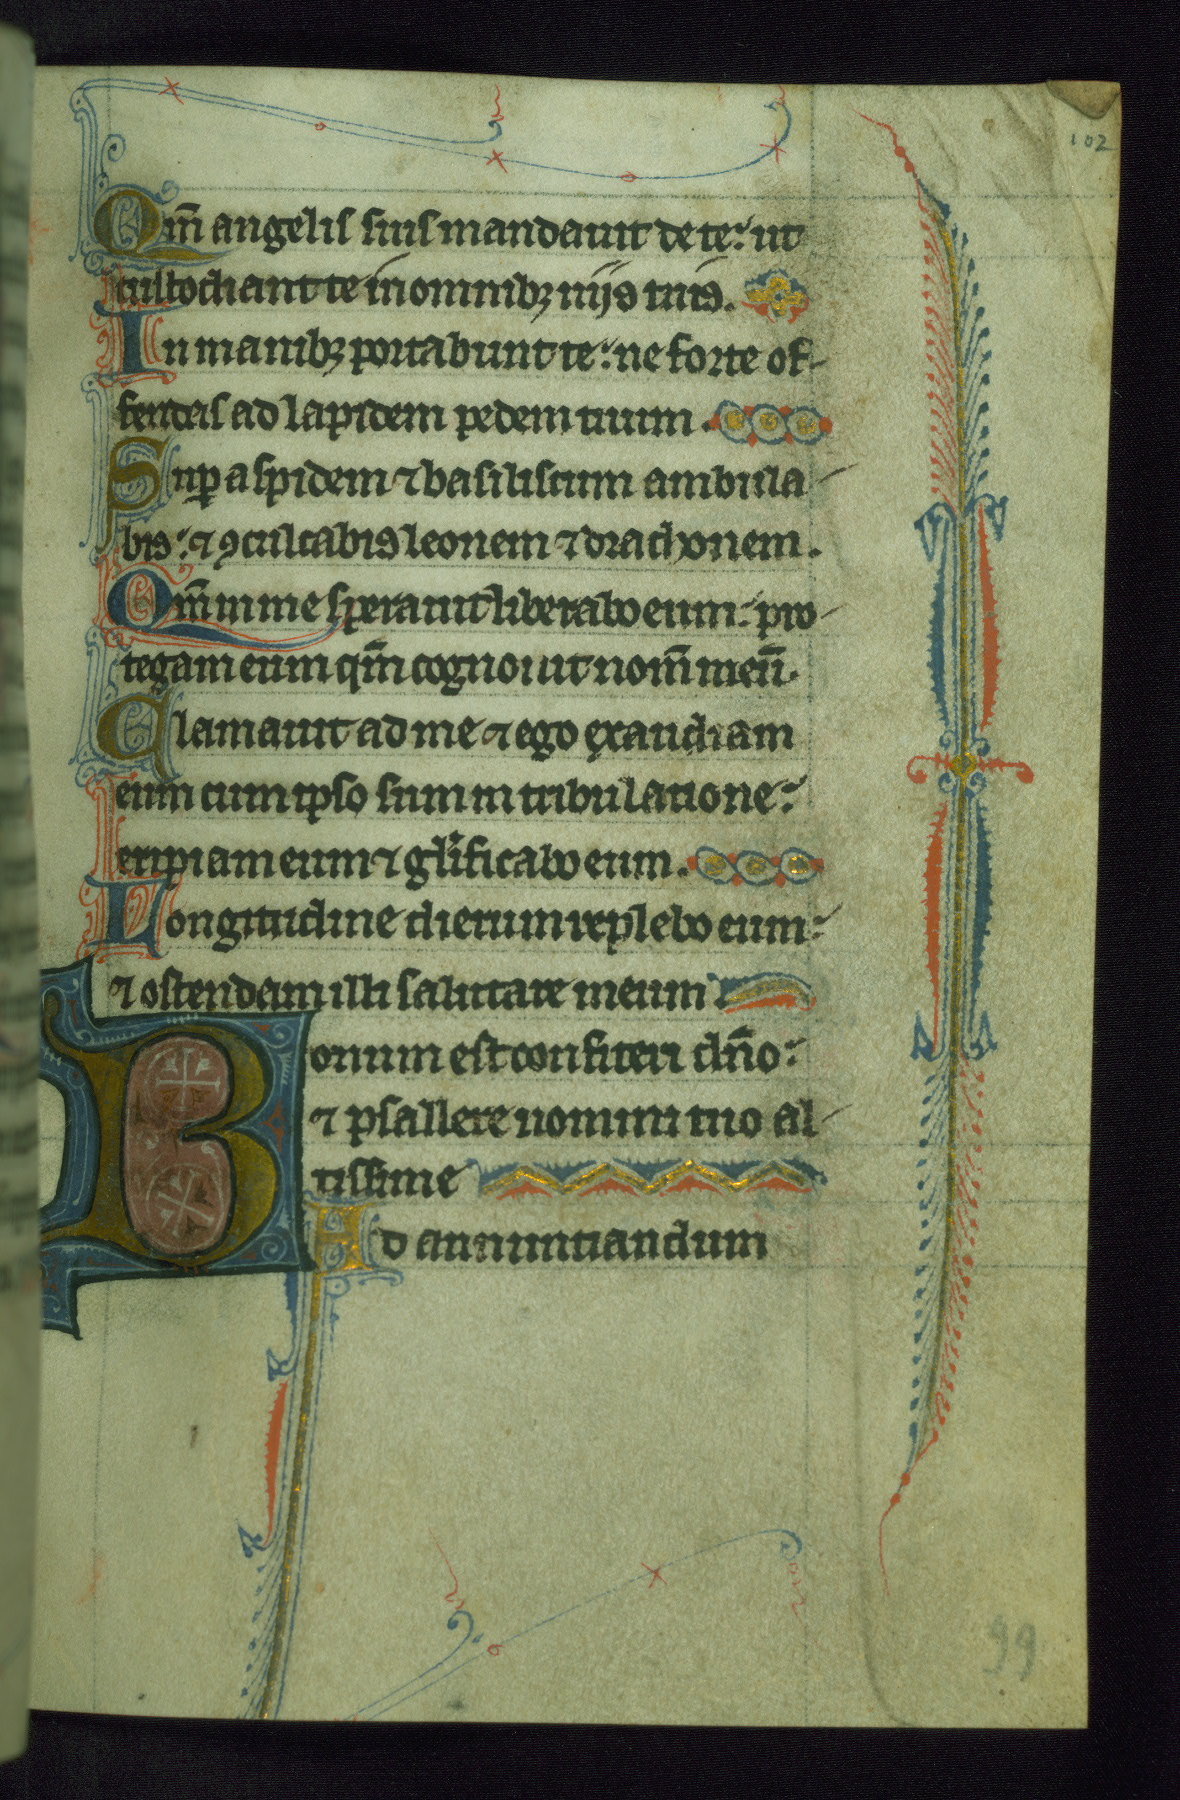 102
Qm̄ angelis suis mandauit de te: ut
custodiant te in omnibꝫ uijs tuis.
In manibꝫ portabunt te: ne forte of-
fendas ad lapidem pedem tuum.
Suꝑ aspidem ⁊ basiliscum ambula-
bis: ⁊ ꝯculcabis leonem ⁊ drachonem.
Qm̄ in me sperauit liberabo eum: pro-
tegam eum qm̄ cognouit nom̄ meū.
Clamauit ad me ⁊ ego exaudiam
eum cum ipso sum in tribulatione:
eripiam eum ⁊ gl̓ificabo eum.
Longitudine dierum replebo eum:
⁊ ostendam illi salutare meum
Bonum est confiteri dn̄o:
⁊ psallere nomini tuo al-
tissime
Ad annuntiandum
99